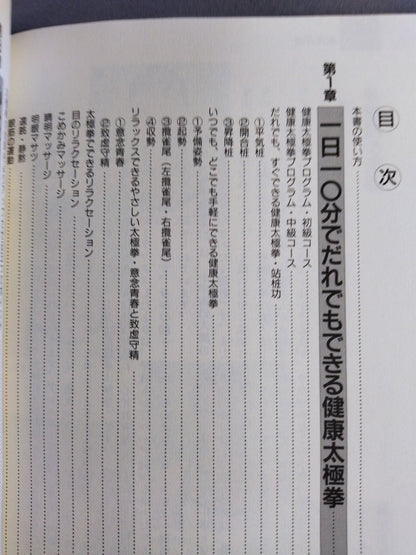 目次
本書の使い方
第1章 一日一〇分でだれでもできる健康太極拳
健康太極拳プログラム・初級コース
健康太極拳プログラム・中級コース
だれでも、すぐできる健康太極拳・站桩功
①平気桩
②開合桩
③昇降桩
いつでも、どこでも手軽にできる健康太極拳
①予備姿勢
②起勢
③攬雀尾（左攬雀尾・右攬雀尾）
④収勢
リラックスできるやさしい太極拳・意念青春と致虚守精
①意念青春
②致虚守精
太極拳でできるリラクセーション
目のリラクセーション
こめかみマッサージ
睛明マッサージ
明眼マサツ
遠眺・静黙
眼筋の運動